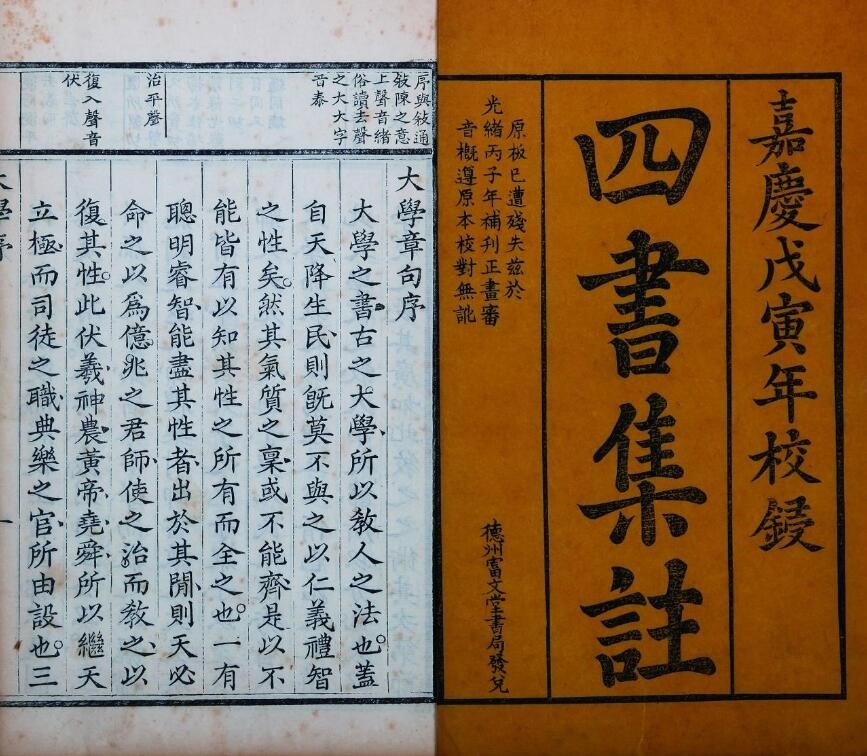 嘉慶戊寅年校鋟
四書集註
原板已遭殘失茲於
光緒丙子年補刊正畫審
音概遵原本校對無訛
德州富文堂書局發兌
序與敘通
敘陳之意
上聲音緒
俗讀去聲
之大大字
音泰
治平聲
復入聲音
伏
大學章句序
大學之書古之大學所以敎人之法也蓋
自天降生民則旣莫不與之以仁義禮智
之性矣然其氣質之稟或不能齊是以不
能皆有以知其性之所有而全之也一有
聰明睿智能盡其性者出於其閒則天必
命之以爲億兆之君師使之治而敎之以
復其性此伏羲神農黃帝堯舜所以繼天
立極而司徒之職典樂之官所由設也三
大學序
一